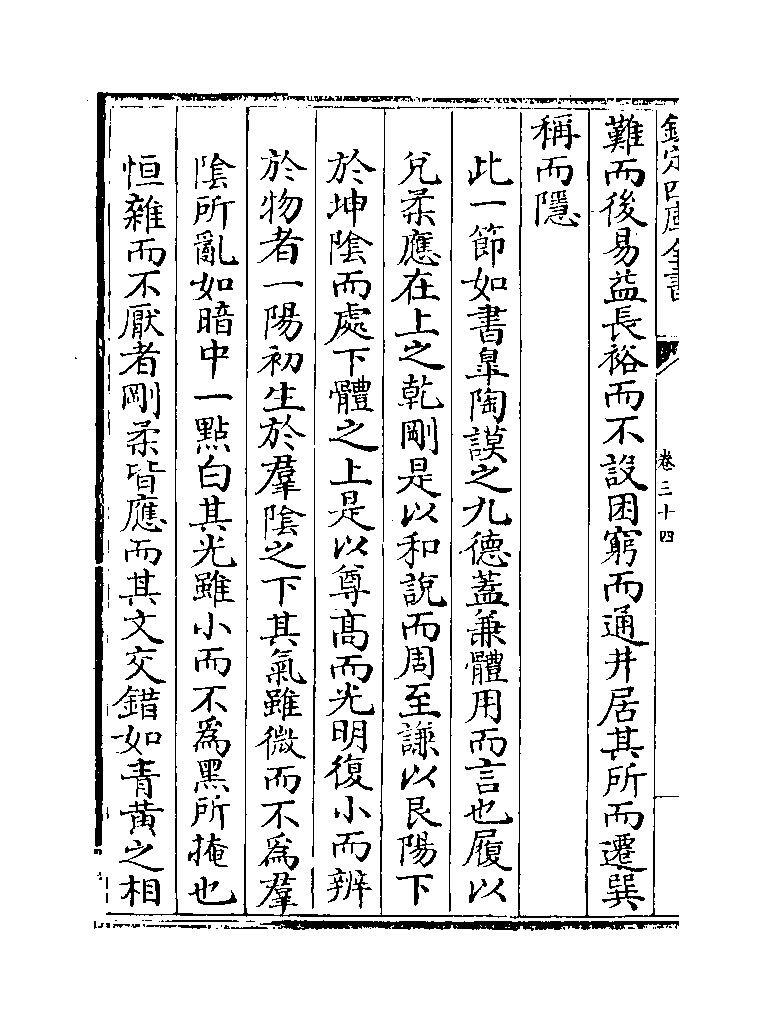 欽定四庫全書
卷三十四
難而後易益長裕而不設困窮而通井居其所而遷巽
稱而隱
此一節如書臯陶謨之九德蓋兼體用而言也履以
兌柔應在上之乾剛是以和說而周至謙以艮陽下
於坤陰而處下體之上是以尊髙而光明復小而辨
於物者一陽初生於羣陰之下其氣雖微而不為羣
陰所亂如暗中一點白其光雖小而不為黑所掩也
恒雜而不厭者剛柔皆應而其文交錯如青黄之相